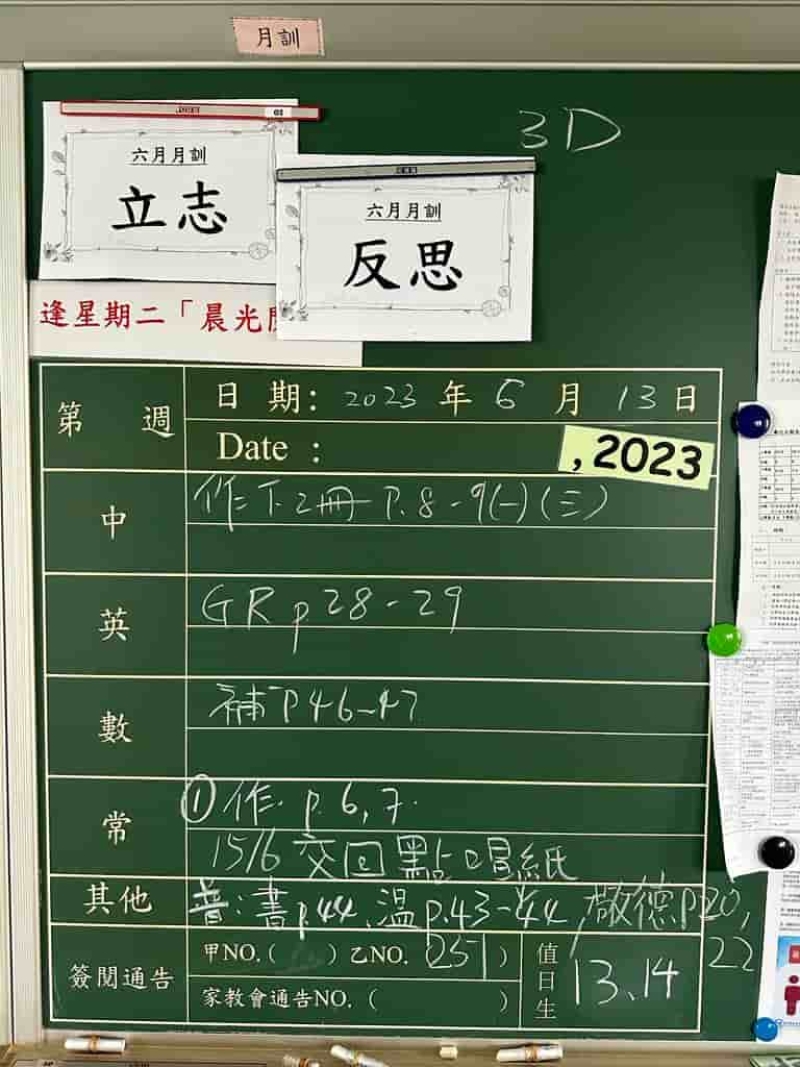 月訓
3D
六月月訓
立志
六月月訓
反思
逢星期二「晨光
第 週
日 期: 2023 年 6 月 13 日
Date :
, 2023
中
作:下2冊 P.8-9(一)(三)
英
GR p28-29
數
補P46-47
常
①作. p.6,7.
15/6 交回點唱紙
其他
普:書p.44、溫p.43-44,敬德P20,
22
簽閱通告
甲NO.( ) 乙NO. (251)
家教會通告NO. ( )
值日生
13、14